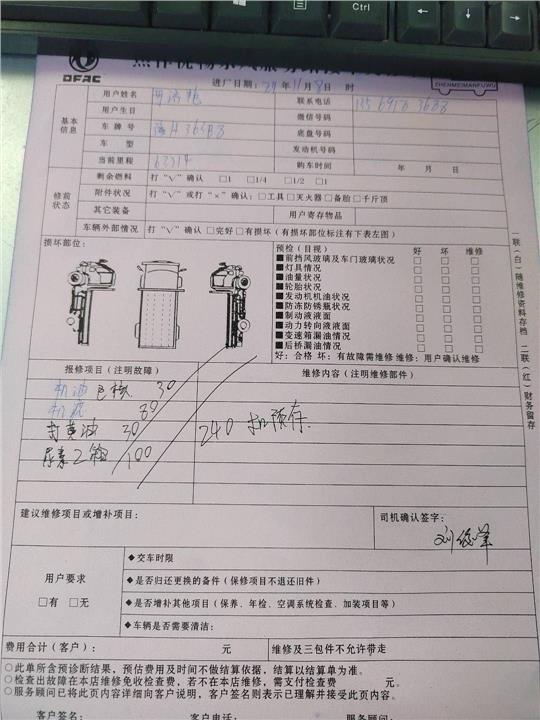 Ctrl
DFAC
ZHENMEIMANFUWU
进厂日期: 年 11 月 8 日 时
基本信息
用户姓名
联系电话
用户生日
微信号码
车牌号
底盘号码
车型
发动机号码
当前里程 62314
购车时间 年 月 日
修前状态
剩余燃料 打“√”确认 □1 □1/4 □1/2 □1
附件状况 打“√”或打“×”确认:□工具□灭火器□备胎□千斤顶
其它装备
用户寄存物品
车辆外部情况 打“√”确认□完好□有损坏(有损坏部位标注有下表左图)
损坏部位:
预检(目视) 好 坏 维修
■前挡风玻璃及车门玻璃状况 □ □ □
■灯具情况 □ □ □
■油量状况 □ □ □
■轮胎状况 □ □ □
■发动机机油状况 □ □ □
■防冻防锈瓶状况 □ □ □
■制动液液面 □ □ □
■动力转向液液面 □ □ □
■变速箱漏油情况 □ □ □
■后桥漏油情况 □ □ □
好:合格 坏:有故障需维修 维修:用户确认维修
一联(白)随维修资料存档 二联(红)财务留存
报修项目(注明故障)
维修内容(注明维修部件)
机油 30
机滤 80
打黄油 30
尿素2箱 100
240 扣预存.
建议维修项目或增补项目:
司机确认签字:
用户要求
□有 □无
◆交车时限
◆是否归还更换的备件(保修项目不退还旧件)
◆是否增补其他项目(保养、年检、空调系统检查、加装项目等)
◆车辆是否需要清洁:
费用合计(客户): 元
维修及三包件不允许带走
○此单所含预诊断结果,预估费用及时间不做结算依据,结算以结算单为准。
○检查出故障在本店维修免收检查费,若不在本店维修,需支付检查费 元。
○服务顾问已将此页内容详细向客户说明,客户签名则表示已理解并接受此页内容。
客户签名: 客户电话: 服务顾问